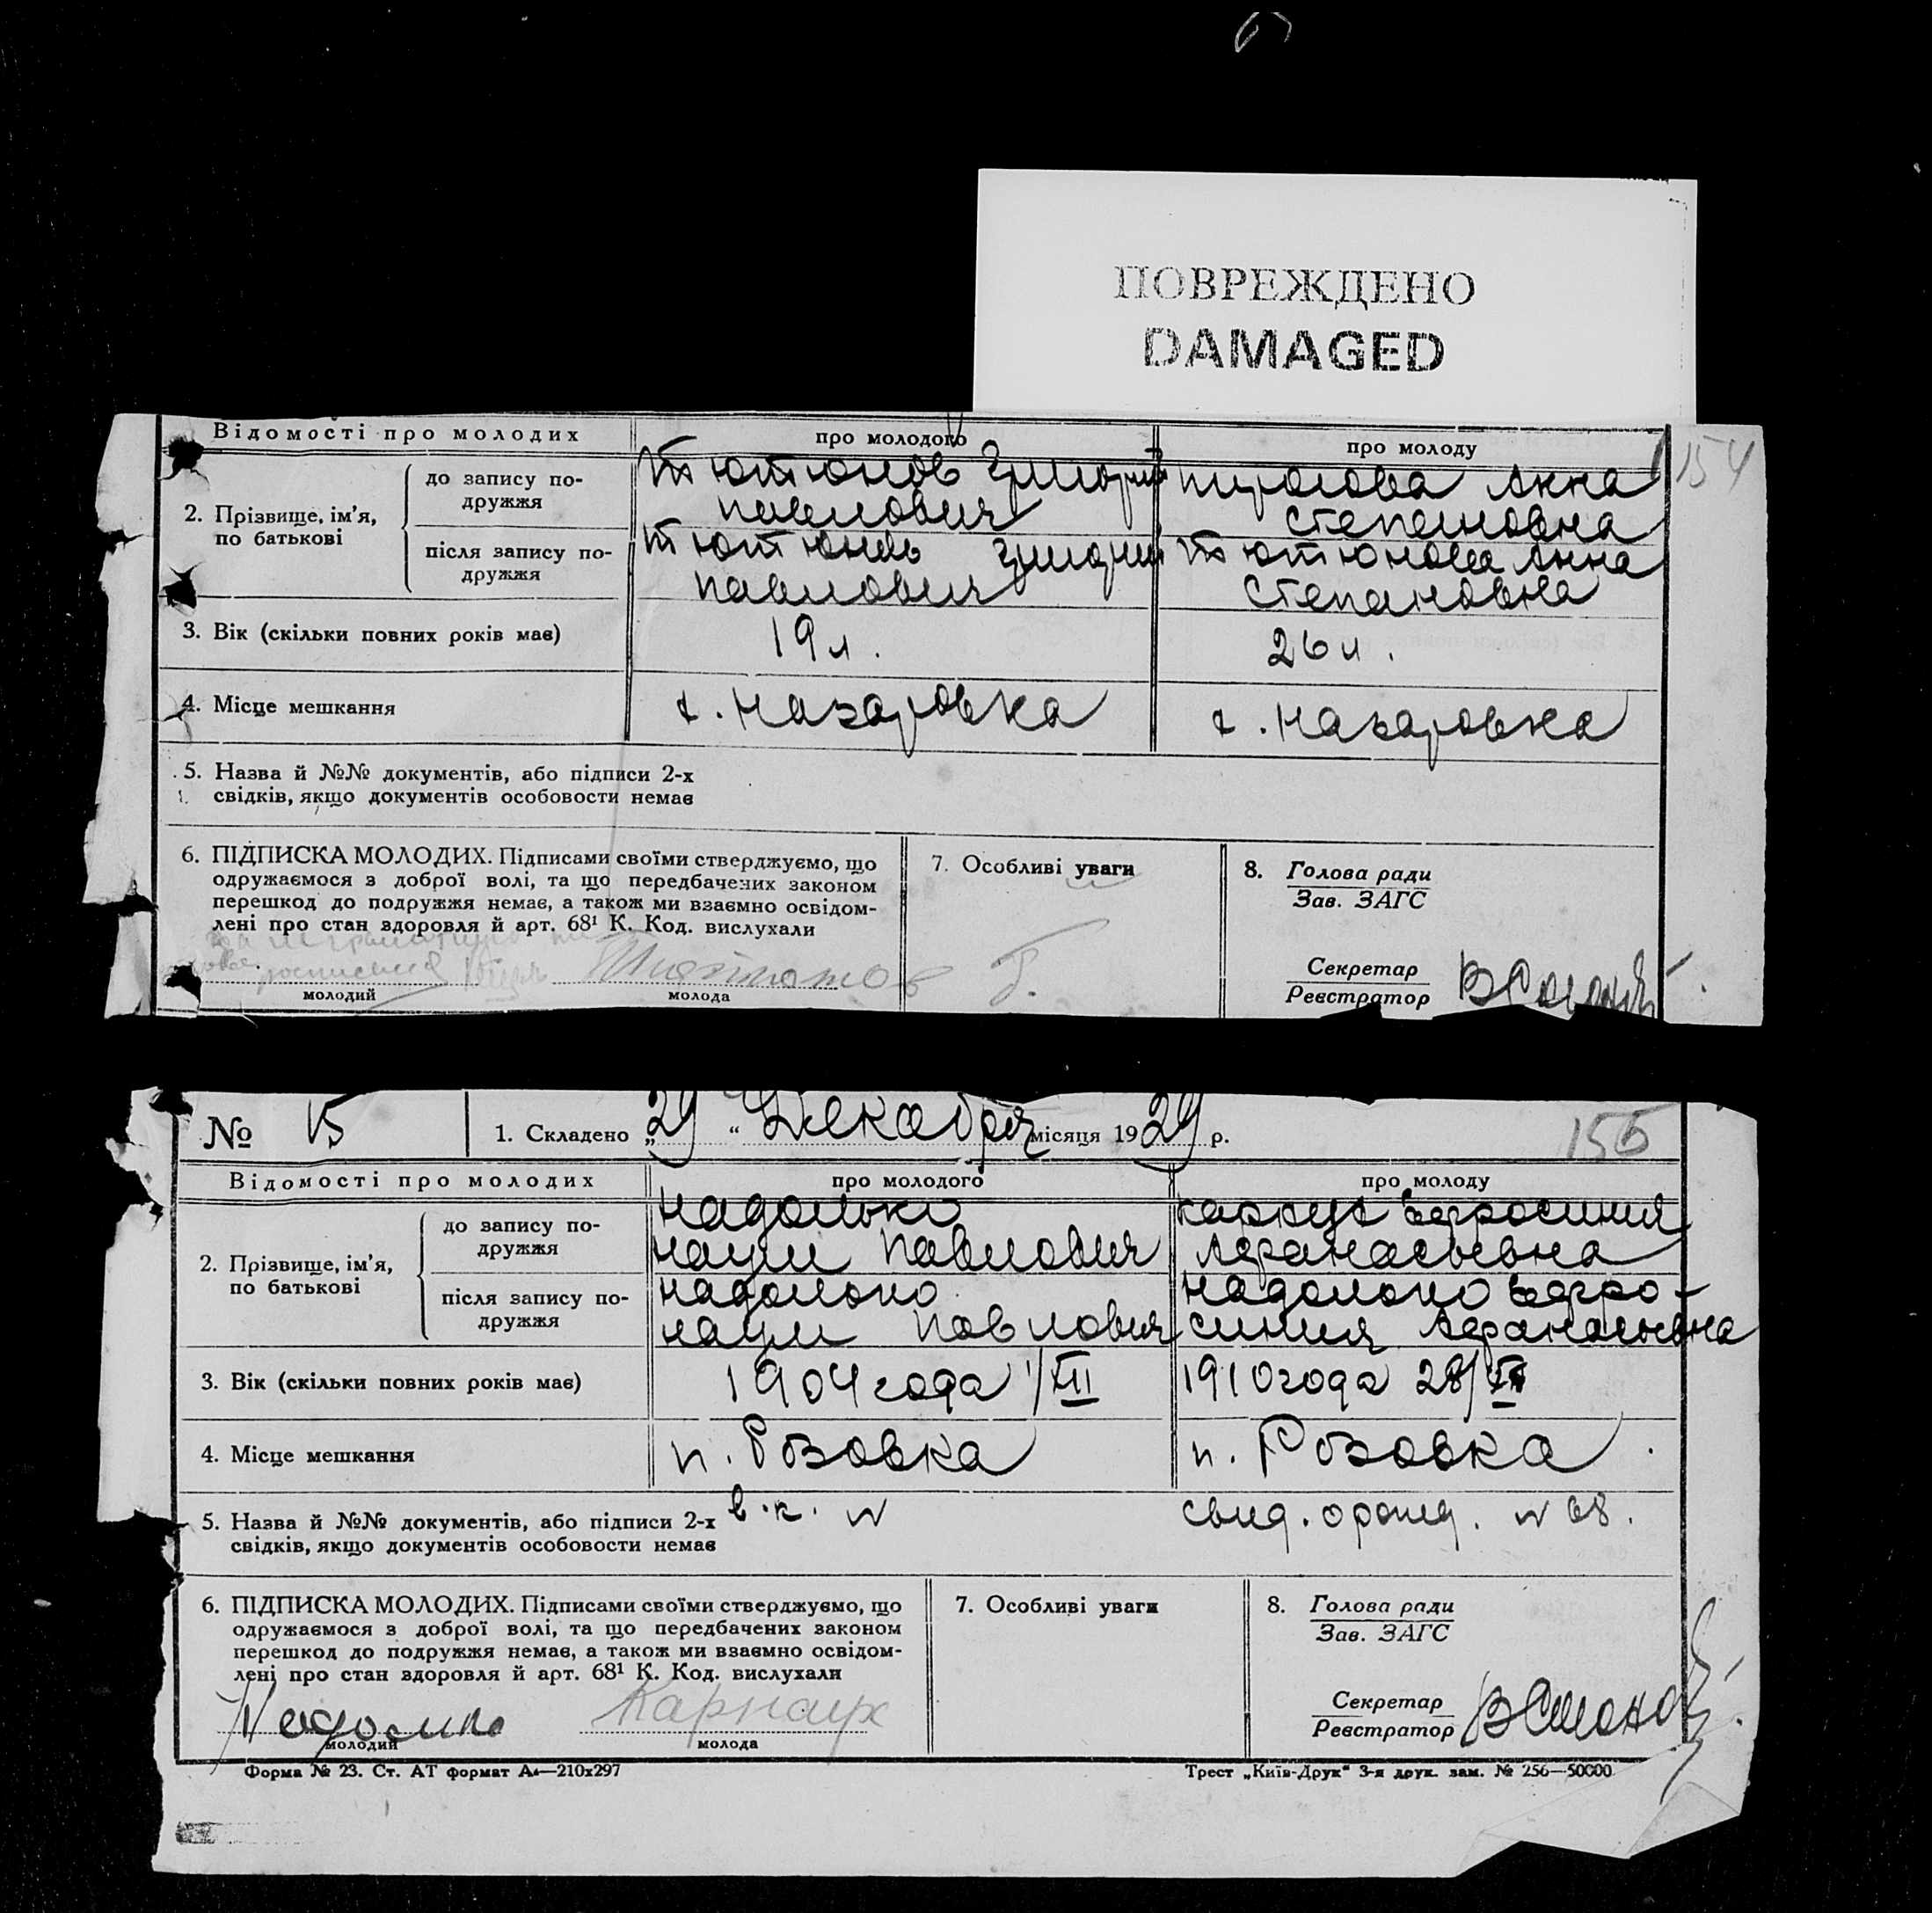 ПОВРЕЖДЕНО
DAMAGED
154
Відомості про молодих
про молодого
про молоду
2. Прізвище, ім’я,
по батькові
до запису по-
дружжя
Тютюнов Григорий
Павлович
Анна
Степановна
після запису по-
дружжя
Тютюнов
Павлович
Тютюнова Анна
Степановна
3. Вік (скільки повних років має)
19 л.
26 л.
4. Місце мешкання
х. Назаровка
х. Назаровка
5. Назва й №№ документів, або підписи 2-х
свідків, якщо документів особовости немає
6. ПІДПИСКА МОЛОДИХ. Підписами своїми стверджуємо, що
одружаємося з доброї волі, та що передбачених законом
перешкод до подружжя немає, а також ми взаємно освідом-
лені про стан здоровля й арт. 68¹ К. Код. вислухали
молодий
молода
7. Особливі уваги
8. Голова ради
Зав. ЗАГС
Секретар
Реєстратор
№ 15
1. Складено „29“ Декабря місяця 1929 р.
155
Відомості про молодих
про молодого
про молоду
2. Прізвище, ім’я,
по батькові
до запису по-
дружжя
Надолько
Наум Павлович
Ефросиния
Афанасьевна
після запису по-
дружжя
Надолько
Наум Павлович
Надолько Ефро-
синия Афанасьевна
3. Вік (скільки повних років має)
1904 года 1/XII
1910 года 28/
4. Місце мешкання
п. Розовка
п. Розовка
5. Назва й №№ документів, або підписи 2-х
свідків, якщо документів особовости немає
в.к. №
свид. о рожд. № 68.
6. ПІДПИСКА МОЛОДИХ. Підписами своїми стверджуємо, що
одружаємося з доброї волі, та що передбачених законом
перешкод до подружжя немає, а також ми взаємно освідом-
лені про стан здоровля й арт. 68¹ К. Код. вислухали
Надолько
Карнаух
молодий
молода
7. Особливі уваги
8. Голова ради
Зав. ЗАГС
Секретар
Реєстратор
Форма № 23. Ст. АТ формат А₄—210x297
Трест „Київ-Друк“ 3-я друк. зам. № 256—50000